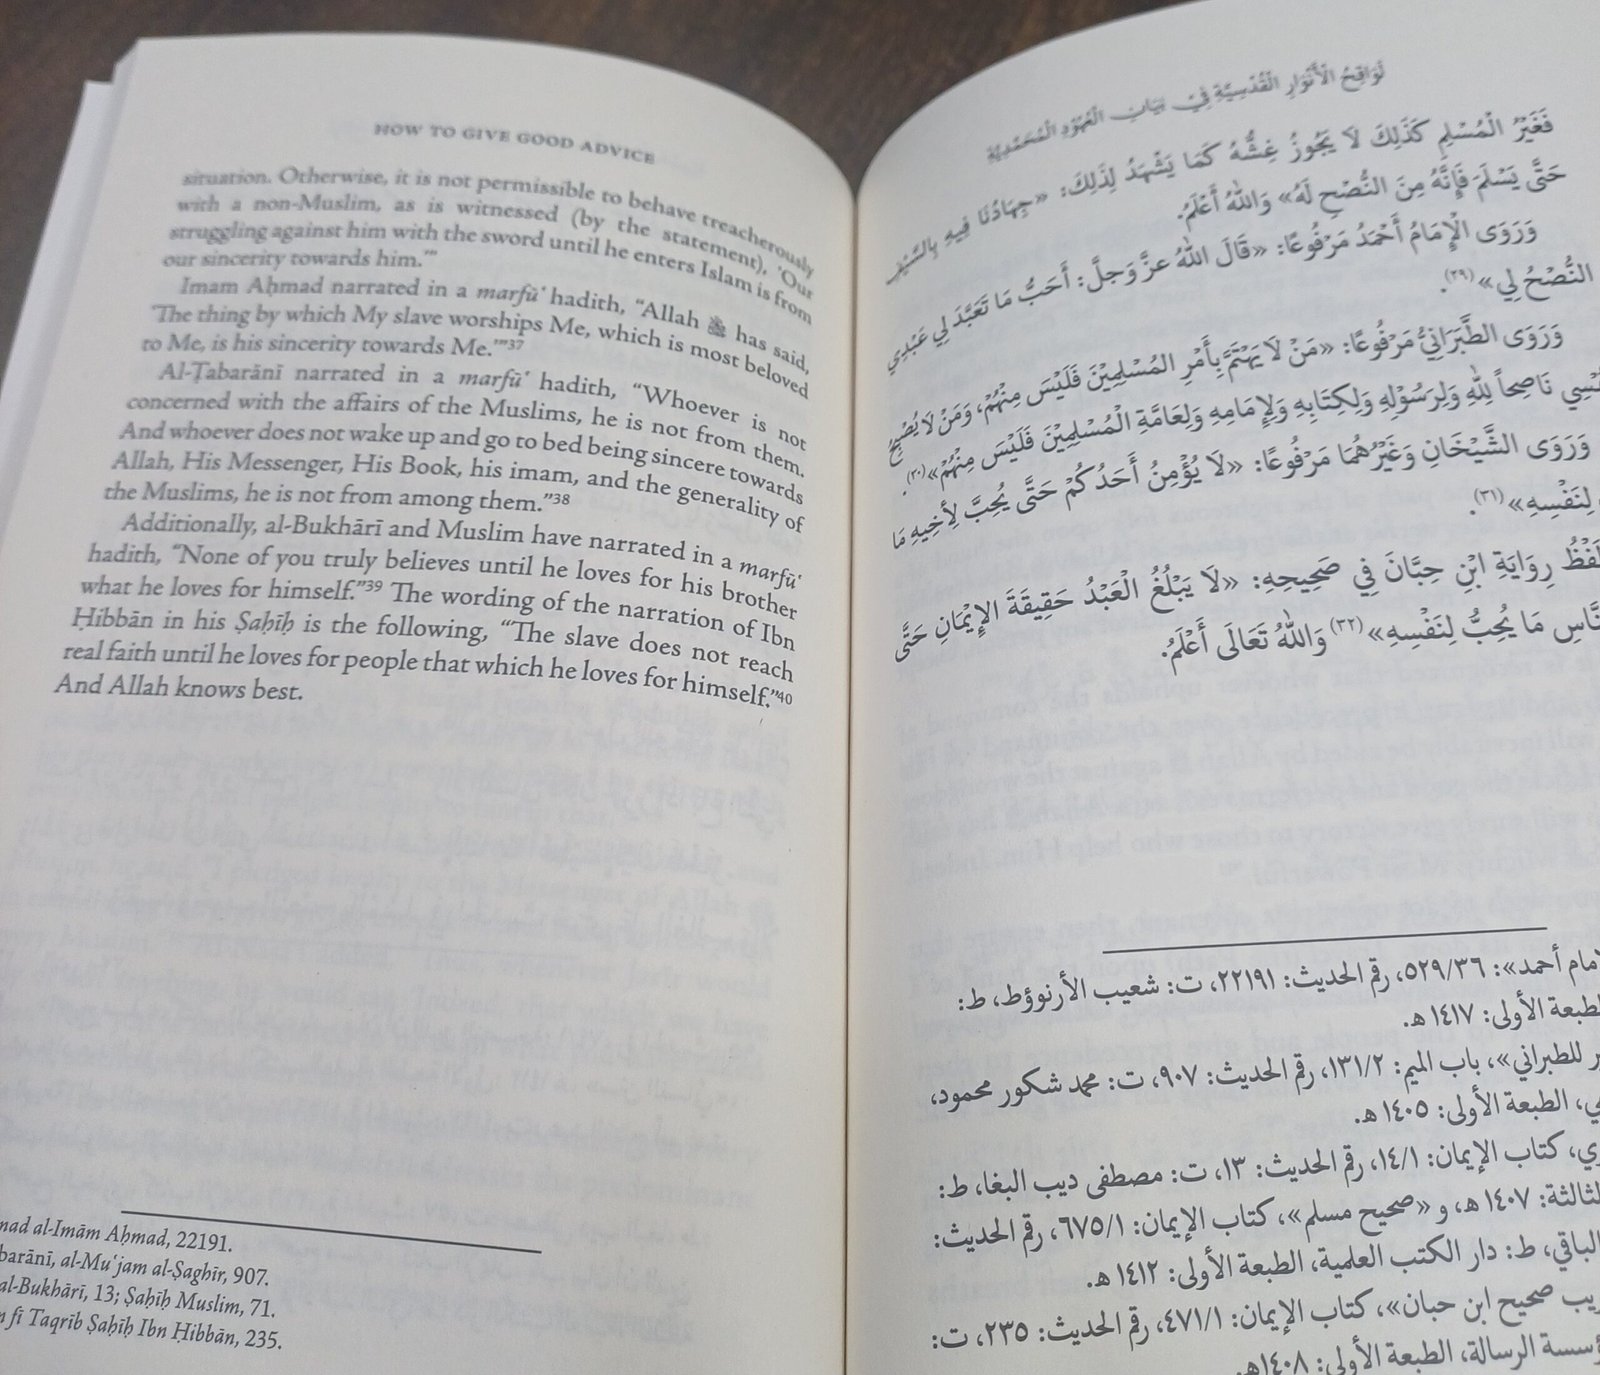 HOW TO GIVE GOOD ADVICE
situation. Otherwise, it is not permissible to behave treacherously
with a non-Muslim, as is witnessed (by the statement), 'Our
struggling against him with the sword until he enters Islam is from
our sincerity towards him.'"
Imam Aḥmad narrated in a marfūʿ hadith, "Allah ﷻ has said,
'The thing by which My slave worships Me, which is most beloved
to Me, is his sincerity towards Me.'"37
Al-Ṭabarānī narrated in a marfūʿ hadith, "Whoever is not
concerned with the affairs of the Muslims, he is not from them.
And whoever does not wake up and go to bed being sincere towards
Allah, His Messenger, His Book, his imam, and the generality of
the Muslims, he is not from among them."38
Additionally, al-Bukhārī and Muslim have narrated in a marfūʿ
hadith, "None of you truly believes until he loves for his brother
what he loves for himself."39 The wording of the narration of Ibn
Ḥibbān in his Ṣaḥīḥ is the following, "The slave does not reach
real faith until he loves for people that which he loves for himself."40
And Allah knows best.
al-Imām Aḥmad, 22191.
al-Muʿjam al-Ṣaghīr, 907.
al-Bukhārī, 13; Ṣaḥīḥ Muslim, 71.
fī Taqrīb Ṣaḥīḥ Ibn Ḥibbān, 235.
لَوَاقِحُ الْأَنْوَارِ الْقُدْسِيَّةِ فِيْ بَيَانِ الْعُهُوْدِ الْمُحَمَّدِيَّةِ
فَغَيْرُ الْمُسْلِمِ كَذَلِكَ لَا يَجُوزُ غِشُّهُ كَمَا يَشْهَدُ لِذَلِكَ: «جِهَادُنَا فِيهِ بِالسَّيْفِ
حَتَّى يَسْلَمَ فَإِنَّهُ مِنَ النُّصْحِ لَهُ» وَاللهُ أَعْلَمُ.
وَرَوَى الْإِمَامُ أَحْمَدُ مَرْفُوعًا: «قَالَ اللهُ عزَّ وَجلَّ: أَحَبُّ مَا تَعَبَّدَ لِي عَبْدِي
النُّصْحُ لِي»(٢٩).
وَرَوَى الطَّبَرَانِيُّ مَرْفُوعًا: «مَنْ لَا يَهْتَمَّ بِأَمْرِ الْمُسْلِمِيْنَ فَلَيْسَ مِنْهُمْ، وَمَنْ لَا يُصْبِحُ
نَاصِحاً لِلّٰهِ وَلِرَسُوْلِهِ وَلِكِتَابِهِ وَلِإِمَامِهِ وَلِعَامَّةِ الْمُسْلِمِيْنَ فَلَيْسَ مِنْهُمْ»(٣٠).
وَرَوَى الشَّيْخَانِ وَغَيْرُهُمَا مَرْفُوعًا: «لَا يُؤْمِنُ أَحَدُكُمْ حَتَّى يُحِبَّ لِأَخِيهِ مَا
لِنَفْسِهِ»(٣١).
رِوَايَةِ ابْنِ حِبَّانَ فِي صَحِيحِهِ: «لَا يَبْلُغُ الْعَبْدُ حَقِيقَةَ الإِيْمَانِ حَتَّى
مَا يُحِبُّ لِنَفْسِهِ»(٣٢) وَاللهُ تَعَالَى أَعْلَمُ.
أحمد»: ٥٢٩/٣٦، رقم الحديث: ٢٢١٩١، ت: شعيب الأرنوؤط، ط:
الأولى: ١٤١٧ هـ.
للطبراني»، باب الميم: ١٣١/٢، رقم الحديث: ٩٠٧، ت: محمد شكور محمود،
الطبعة الأولى: ١٤٠٥ هـ.
كتاب الإيمان: ١٤/١، رقم الحديث: ١٣، ت: مصطفى ديب البغا، ط:
١٤٠٧ هـ، و «صحيح مسلم»، كتاب الإيمان: ٦٧٥/١، رقم الحديث:
ط: دار الكتب العلمية، الطبعة الأولى: ١٤١٢ هـ.
صحيح ابن حبان»، كتاب الإيمان: ٤٧١/١، رقم الحديث: ٢٣٥، ت:
الرسالة، الطبعة الأولى: ١٤٠٨هـ.